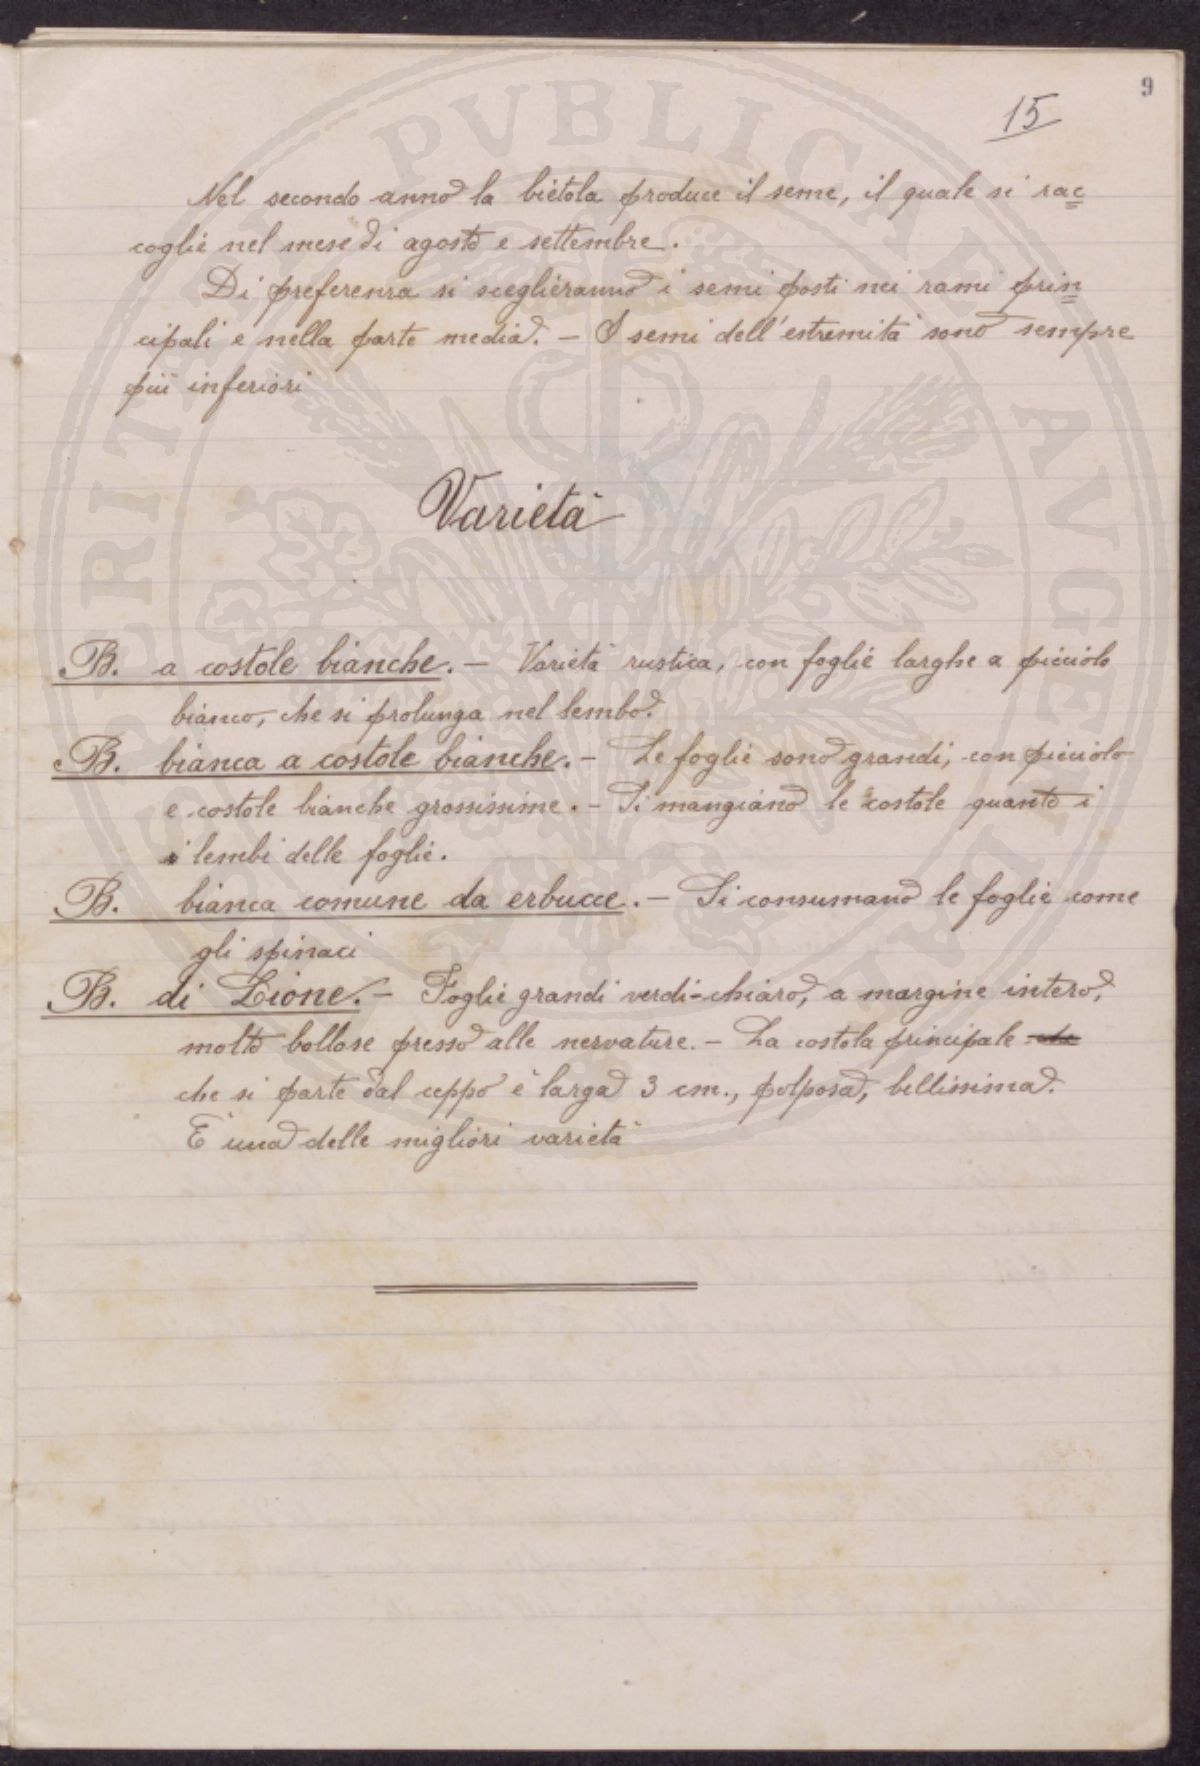 9
15
Nel secondo anno la bietola produce il seme, il quale si rac=
coglie nel mese di agosto e settembre.
Di preferenza si sceglieranno i semi posti nei rami prin=
cipali e nella parte media. - I semi dell'estremità sono sempre
più inferiori
Varietà
B. a costole bianche. - Varietà rustica, con foglie larghe a picciolo
bianco, che si prolunga nel lembo.
B. bianca a costole bianche. - Le foglie sono grandi, con picciolo
e costole bianche grossissime. - Si mangiano le costole quanto i
i lembi delle foglie.
B. bianca comune da erbucce. - Si consumano le foglie come
gli spinaci
B. di Lione. - Foglie grandi verdi-chiaro, a margine intero,
molto bollose presso alle nervature. - La costola principale che
che si parte dal ceppo è larga 3 cm., polposa, bellissima.
È una delle migliori varietà